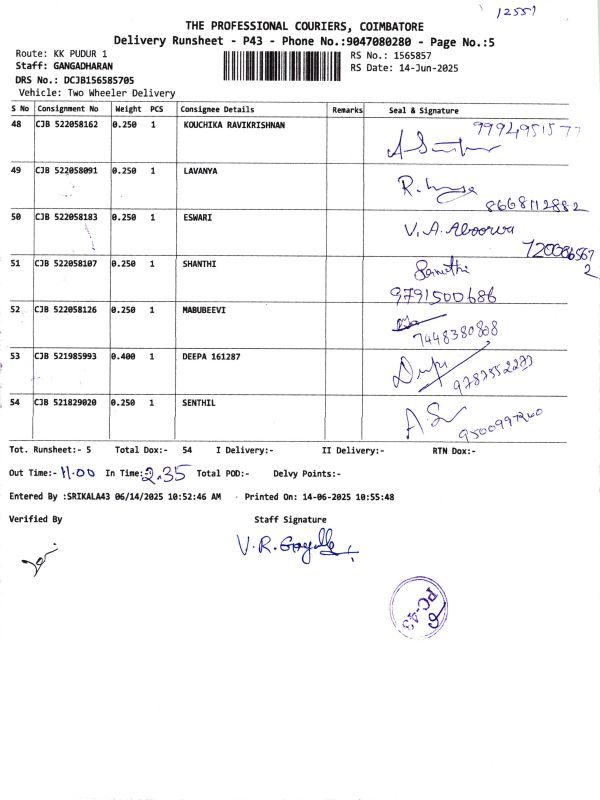 12551
THE PROFESSIONAL COURIERS, COIMBATORE
Delivery Runsheet - P43 - Phone No.:9047080280 - Page No.:5
Route: KK PUDUR 1 RS No.: 1565857
Staff: GANGADHARAN RS Date: 14-Jun-2025
DRS No.: DCJB156585705
Vehicle: Two Wheeler Delivery
S No Consignment No Weight PCS Consignee Details Remarks Seal & Signature
48 CJB 522058162 0.250 1 KOUCHIKA RAVIKRISHNAN 9994951577
49 CJB 522058091 0.250 1 LAVANYA
8668112882
50 CJB 522058183 0.250 1 ESWARI V. A. Aboorva
51 CJB 522058107 0.250 1 SHANTHI
9791500686
52 CJB 522058126 0.250 1 MABUBEEVI
7448380808
53 CJB 521985993 0.400 1 DEEPA 161287
54 CJB 521829020 0.250 1 SENTHIL
Tot. Runsheet:- 5 Total Dox:- 54 I Delivery:- II Delivery:- RTN Dox:-
Out Time:- 11.00 In Time: 2.35 Total POD:- Delvy Points:-
Entered By :SRIKALA43 06/14/2025 10:52:46 AM Printed On: 14-06-2025 10:55:48
Verified By Staff Signature
V.R.
PC-43